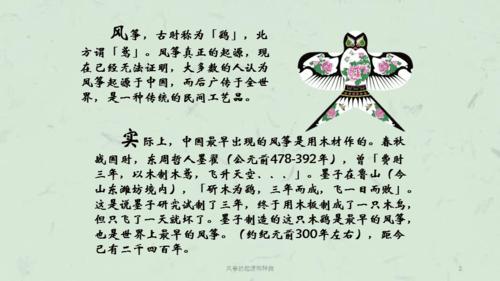 风筝，古时称为「鹞」，北
方谓「鸢」。风筝真正的起源，现
在已经无法证明，大多数的人认为
风筝起源于中国，而后广传于全世
界，是一种传统的民间工艺品。
实际上，中国最早出现的风筝是用木材作的。春秋
战国时，东周哲人墨翟（公元前478-392年），曾「费时
三年，以木制木鸢，飞升天空．．．」。墨子在鲁山（今
山东潍坊境内），「斫木为鹞，三年而成，飞一日而败」。
这是说墨子研究试制了三年，终于用木板制成了一只木鸟，
但只飞了一天就坏了。墨子制造的这只木鹞是最早的风筝，
也是世界上最早的风筝。（约纪元前300年左右），距今
已有二千四百年。
风筝的起源和种类
2